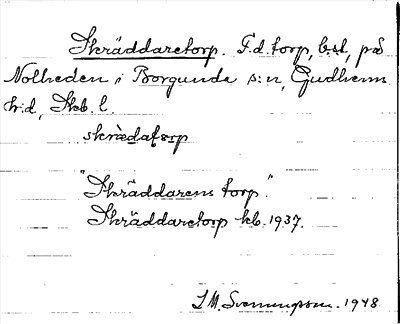 Skräddaretorp. F.d. torp, b.st, på
Nolheden i Borgunda s:n, Gudhem
h:d, Skb. l.
skrædatorp
"Skräddarens torp".
Skräddaretorp kb. 1937.
S.M. Svenungsson. 1948